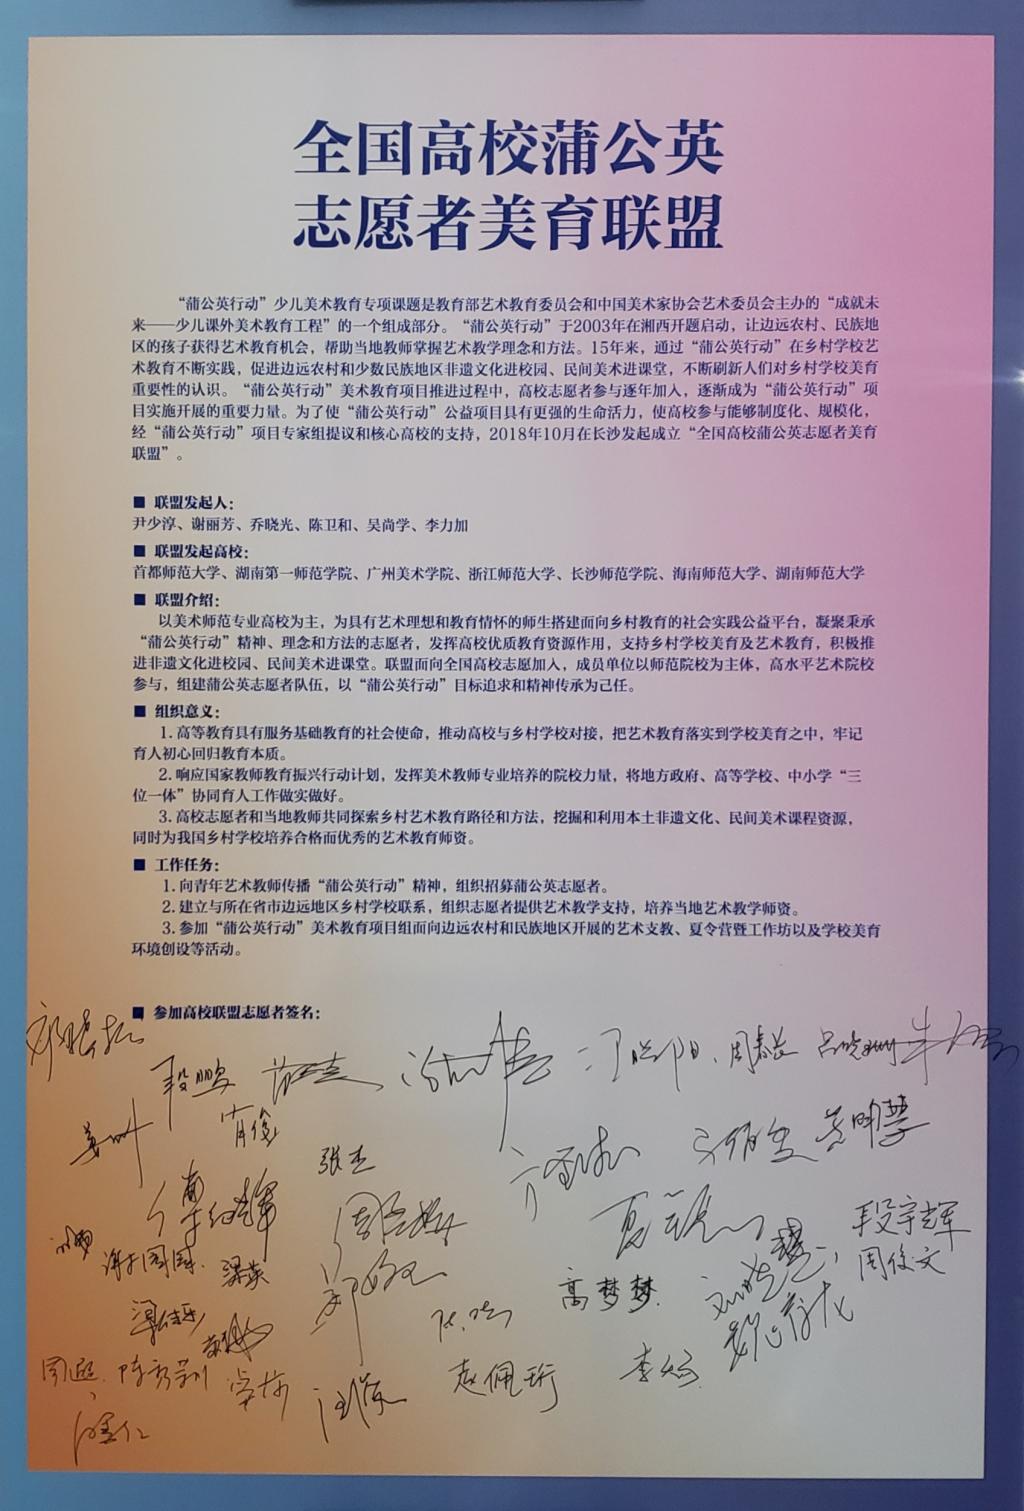 全国高校蒲公英
志愿者美育联盟
“蒲公英行动”少儿美术教育专项课题是教育部艺术教育委员会和中国美术家协会艺术委员会主办的“成就未
来——少儿课外美术教育工程”的一个组成部分。“蒲公英行动”于2003年在湘西开题启动，让边远农村、民族地
区的孩子获得艺术教育机会，帮助当地教师掌握艺术教学理念和方法。15年来，通过“蒲公英行动”在乡村学校艺
术教育不断实践，促进边远农村和少数民族地区非遗文化进校园、民间美术进课堂，不断刷新人们对乡村学校美育
重要性的认识。“蒲公英行动”美术教育项目推进过程中，高校志愿者参与逐年加入，逐渐成为“蒲公英行动”项
目实施开展的重要力量。为了使“蒲公英行动”公益项目具有更强的生命活力，使高校参与能够制度化、规模化，
经“蒲公英行动”项目专家组提议和核心高校的支持，2018年10月在长沙发起成立“全国高校蒲公英志愿者美育
联盟”。
■ 联盟发起人：
尹少淳、谢丽芳、乔晓光、陈卫和、吴尚学、李力加
■ 联盟发起高校：
首都师范大学、湖南第一师范学院、广州美术学院、浙江师范大学、长沙师范学院、海南师范大学、湖南师范大学
■ 联盟介绍：
以美术师范专业高校为主，为具有艺术理想和教育情怀的师生搭建面向乡村教育的社会实践公益平台，凝聚秉承
“蒲公英行动”精神、理念和方法的志愿者，发挥高校优质教育资源作用，支持乡村学校美育及艺术教育，积极推
进非遗文化进校园、民间美术进课堂。联盟面向全国高校志愿加入，成员单位以师范院校为主体，高水平艺术院校
参与，组建蒲公英志愿者队伍，以“蒲公英行动”目标追求和精神传承为己任。
■ 组织意义：
1.高等教育具有服务基础教育的社会使命，推动高校与乡村学校对接，把艺术教育落实到学校美育之中，牢记
育人初心回归教育本质。
2.响应国家教师教育振兴行动计划，发挥美术教师专业培养的院校力量，将地方政府、高等学校、中小学“三
位一体”协同育人工作做实做好。
3.高校志愿者和当地教师共同探索乡村艺术教育路径和方法，挖掘和利用本土非遗文化、民间美术课程资源，
同时为我国乡村学校培养合格而优秀的艺术教育师资。
■ 工作任务：
1.向青年艺术教师传播“蒲公英行动”精神，组织招募蒲公英志愿者。
2.建立与所在省市边远地区乡村学校联系，组织志愿者提供艺术教学支持，培养当地艺术教学师资。
3.参加“蒲公英行动”美术教育项目组面向边远农村和民族地区开展的艺术支教、夏令营暨工作坊以及学校美育
环境创设等活动。
■ 参加高校联盟志愿者签名：
段鹏
肖俊
张杰
黄明慧
段宇辉
梁英
周俊文
高梦梦
赵佩珩